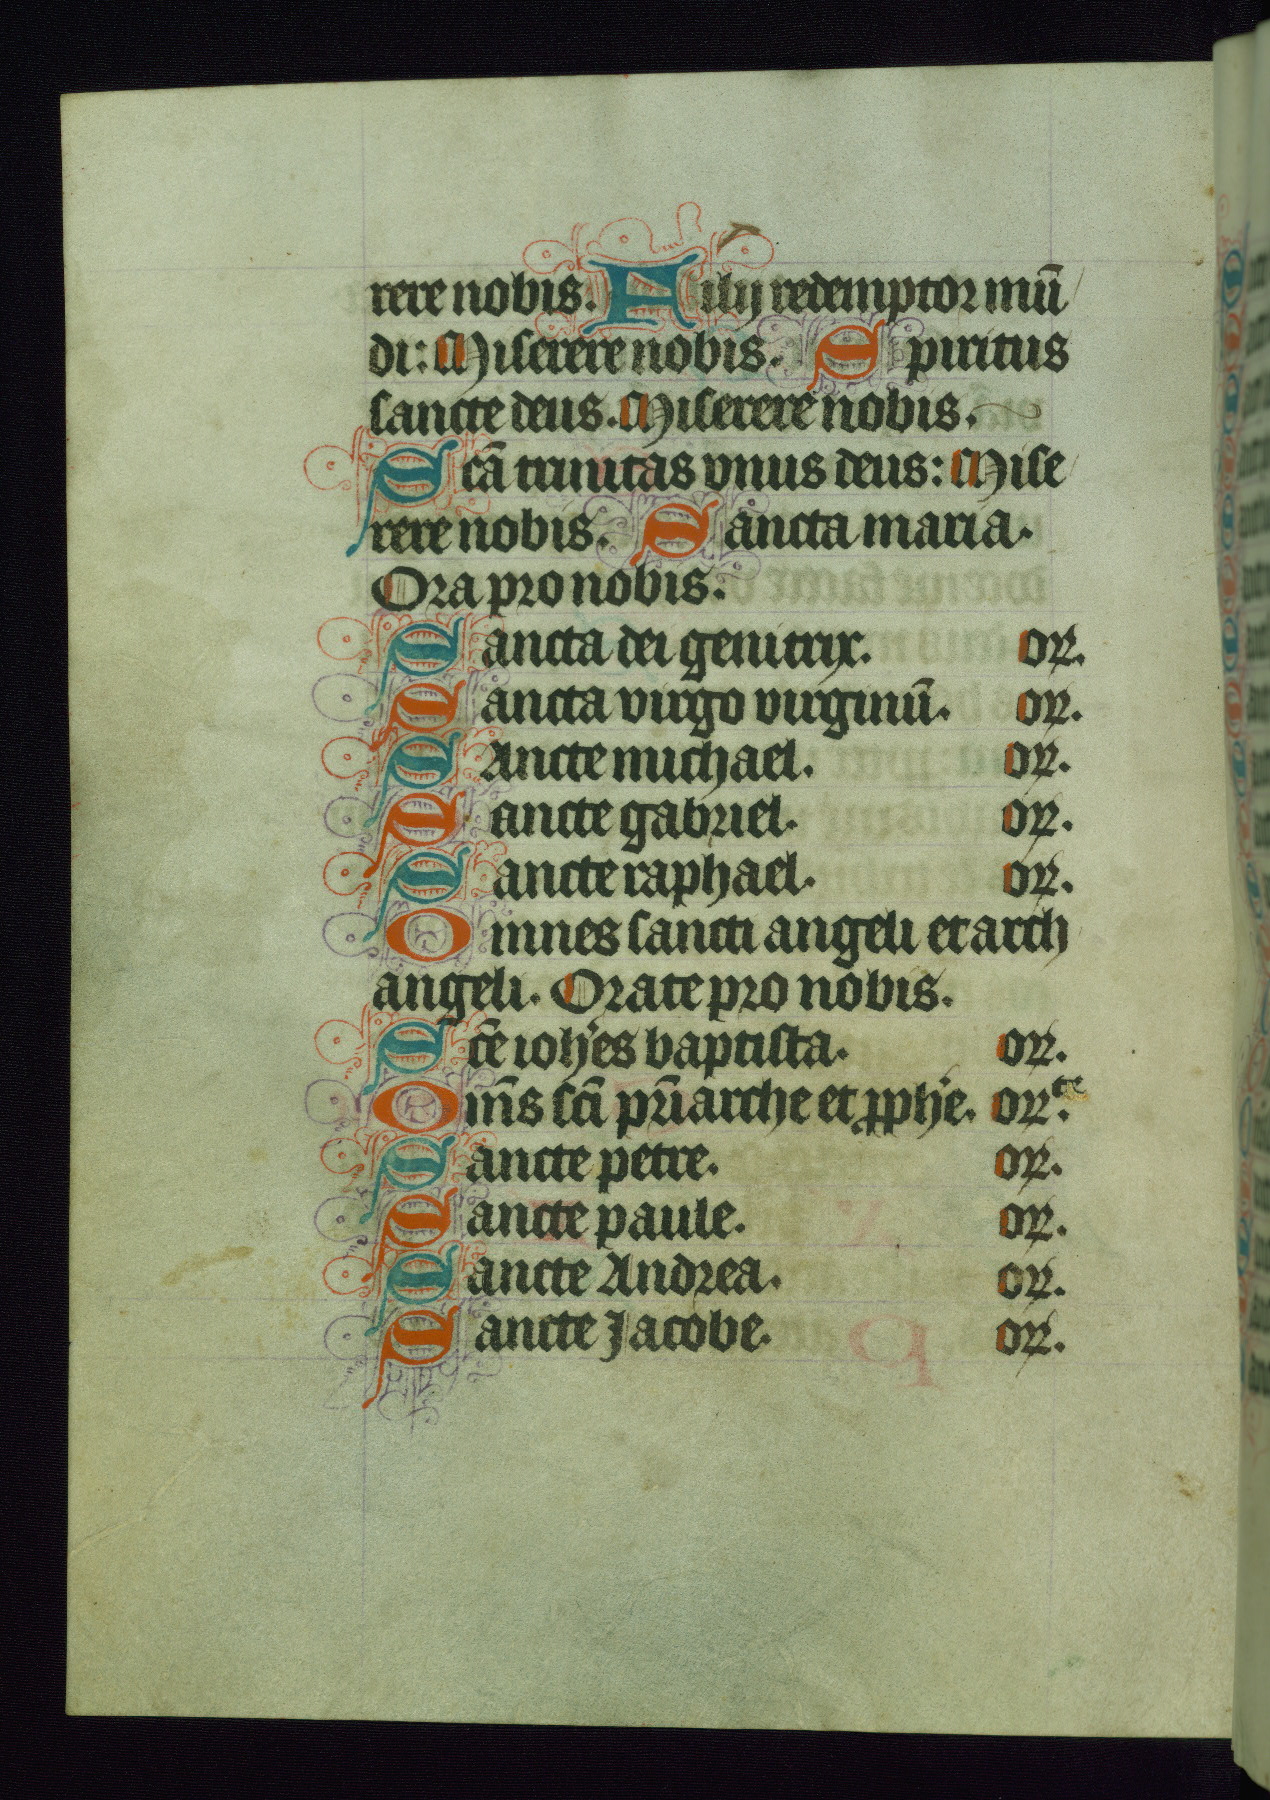 rere nobis. Filij redemptor mu̅
di: Miserere nobis. Spiritus
sancte deus. Miserere nobis.
Sca̅ trinitas vnus deus: Mise
rere nobis. Sancta maria.
Ora pro nobis.
Sancta dei genitrix. oꝝ.
Sancta virgo virginu̅. oꝝ.
SAncte michael. oꝝ.
Sancte gabriel. oꝝ.
Sancte raphael. oꝝ.
Omnes sancti angeli et arch
angeli. Orate pro nobis.
Sce̅ ioh'es baptista. oꝝ.
Om̅s sci̅ pr̅iarche et ꝓph'e. oꝝte.
Sancte petre. oꝝ.
Sancte paule. oꝝ.
Sancte Andrea. oꝝ.
Sancte Jacobe. oꝝ.